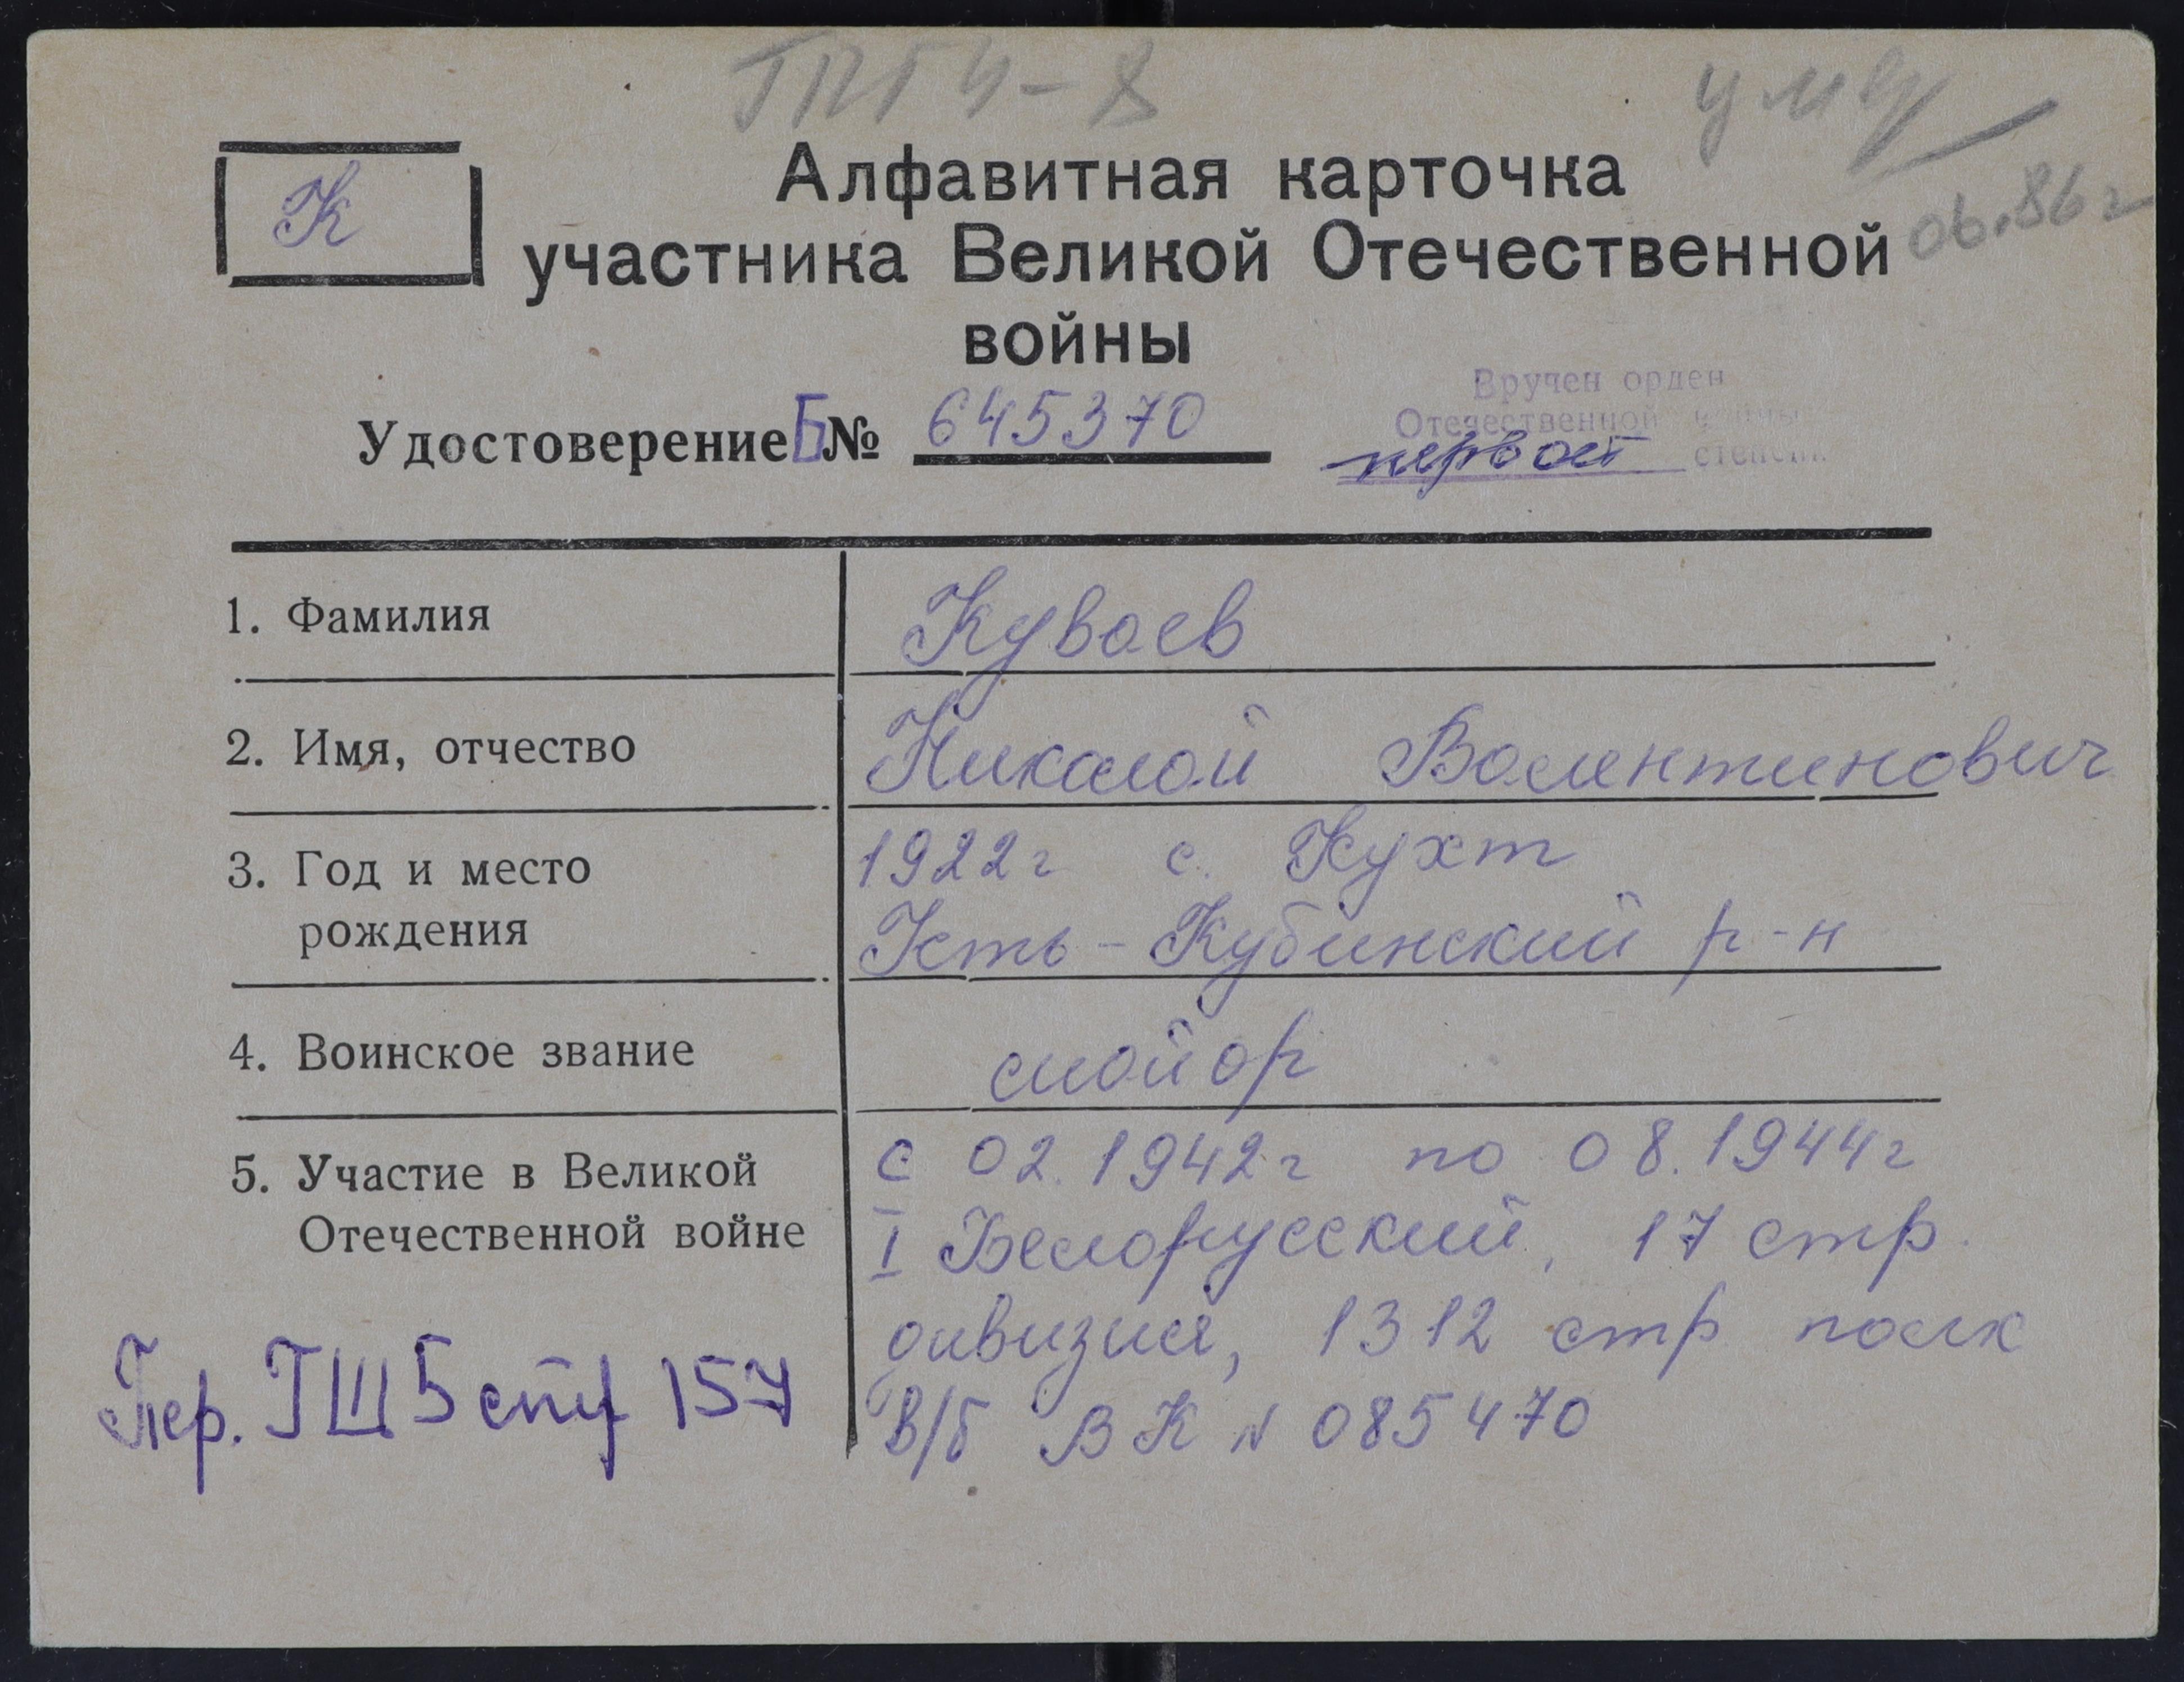 ГПГЧ-8
умер
06.86г
К
Алфавитная карточка
участника Великой Отечественной
войны
Удостоверение Б № 645370
Вручен орден
Отечественной войны
первой степени
1. Фамилия
Куваев
2. Имя, отчество
Николай Валентинович
3. Год и место
рождения
1922г с. Кухт
Усть-Кубинский р-н
4. Воинское звание
майор
5. Участие в Великой
Отечественной войне
с 02.1942г по 08.1944г
I Белорусский, 17 стр.
дивизия, 1312 стр полк
В/б ВК № 085470
Пер. ГШ 5 стр 157